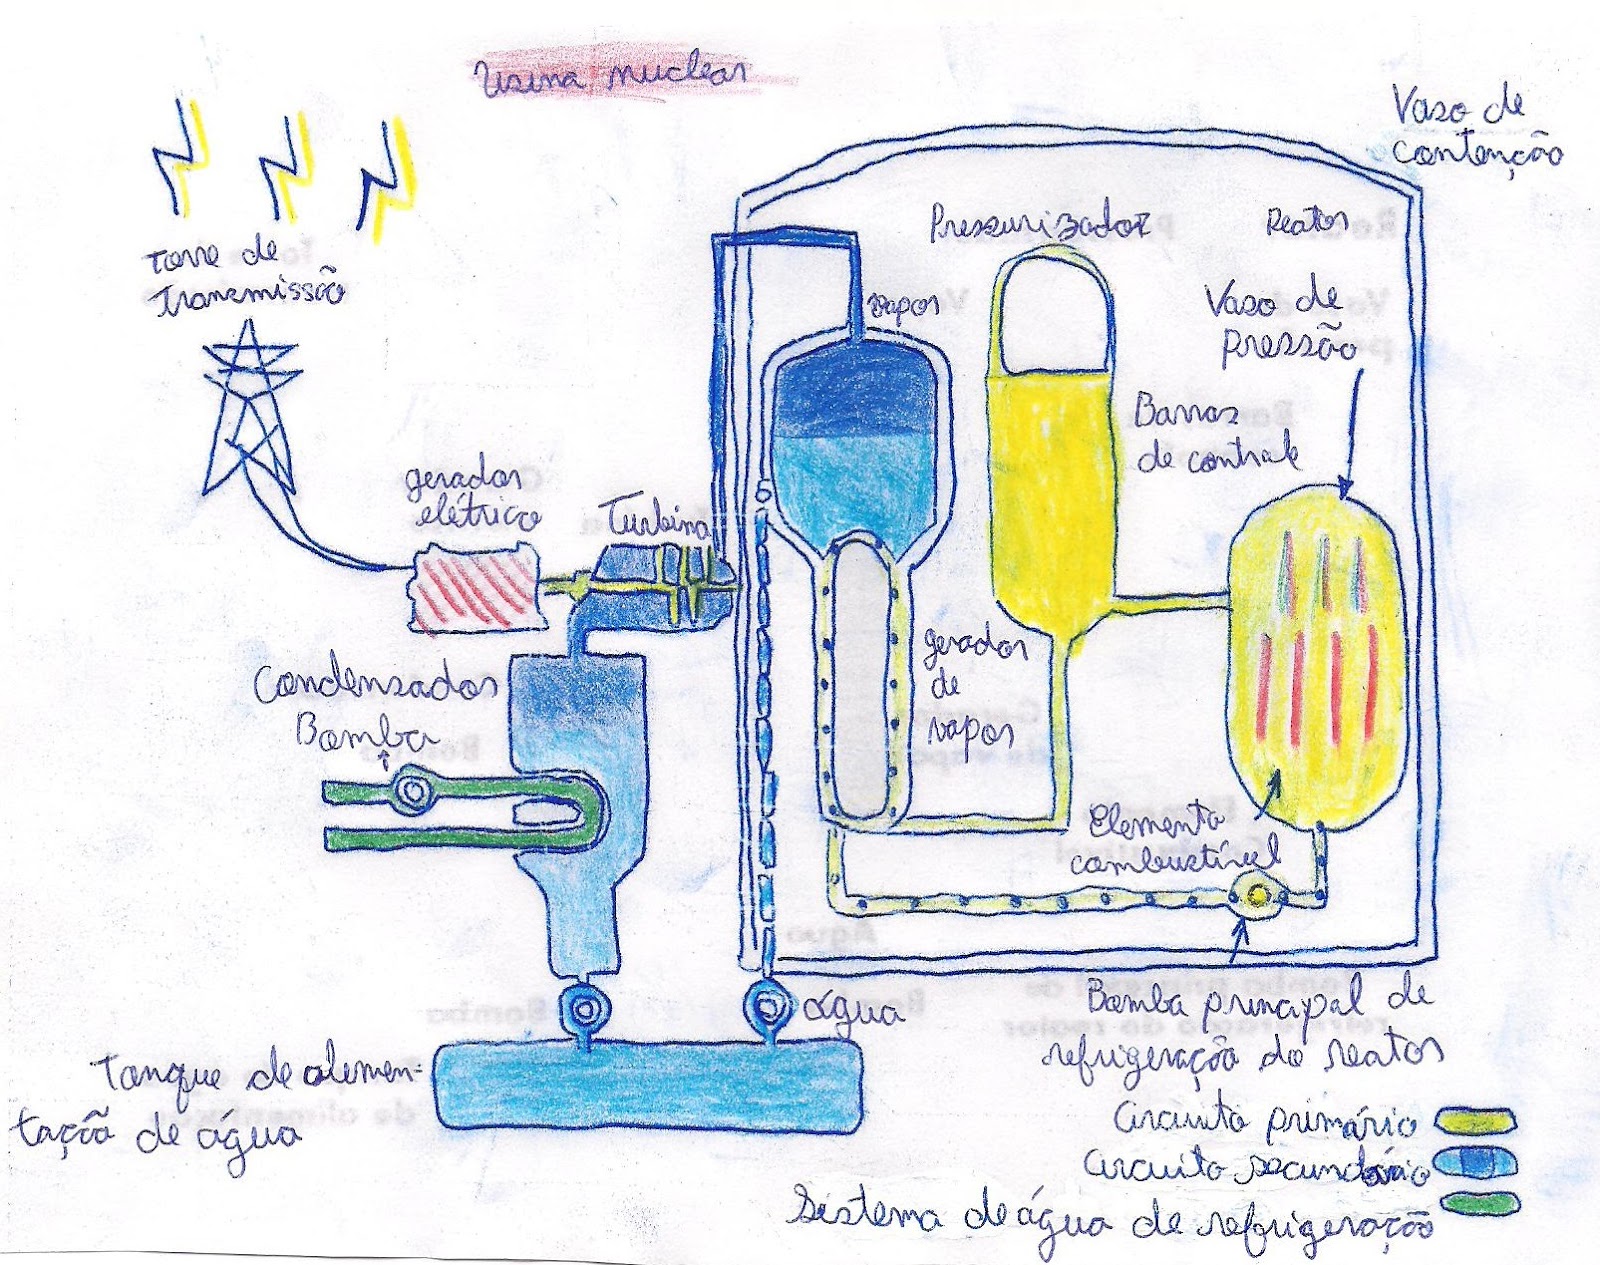 Usina nuclear
Vaso de
contenção
Pressurizador
Reator
Torre de
Transmissão
vapor
Vaso de
pressão
Barras
de controle
gerador
elétrico
Turbina
gerador
de
vapor
Condensador
Bomba
Elemento
combustível
água
Bomba principal de
refrigeração do reator
Tanque de alemen-
tação de água
Circuito primário
Circuito secundário
Sistema de água de refrigeração